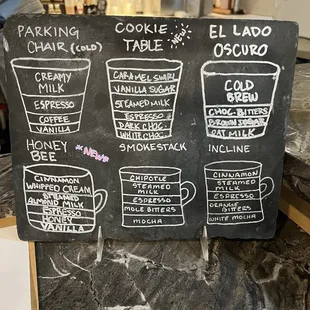 PARKING
CHAIR (COLD)
CREAMY
MILK
ESPRESSO
COFFEE
VANILLA
COOKIE
TABLE
NEW
CARAMEL SWIRL
VANILLA SUGAR
STEAMED MILK
ESPRESSO
DARK CHOC.
WHITE CHOC.
EL LADO
OSCURO
COLD
BREW
CHOC-BITTERS
BROWN SUGAR
OAT MILK
HONEY
BEE
*NEW*
CINNAMON
WHIPPED CREAM
STEAMED
ALMOND MILK
ESPRESSO
HONEY
VANILLA
SMOKESTACK
CHIPOTLE
STEAMED
MILK
ESPRESSO
MOLE BITTERS
MOCHA
INCLINE
CINNAMON
STEAMED
MILK
ESPRESSO
ORANGE
BITTERS
WHITE MOCHA